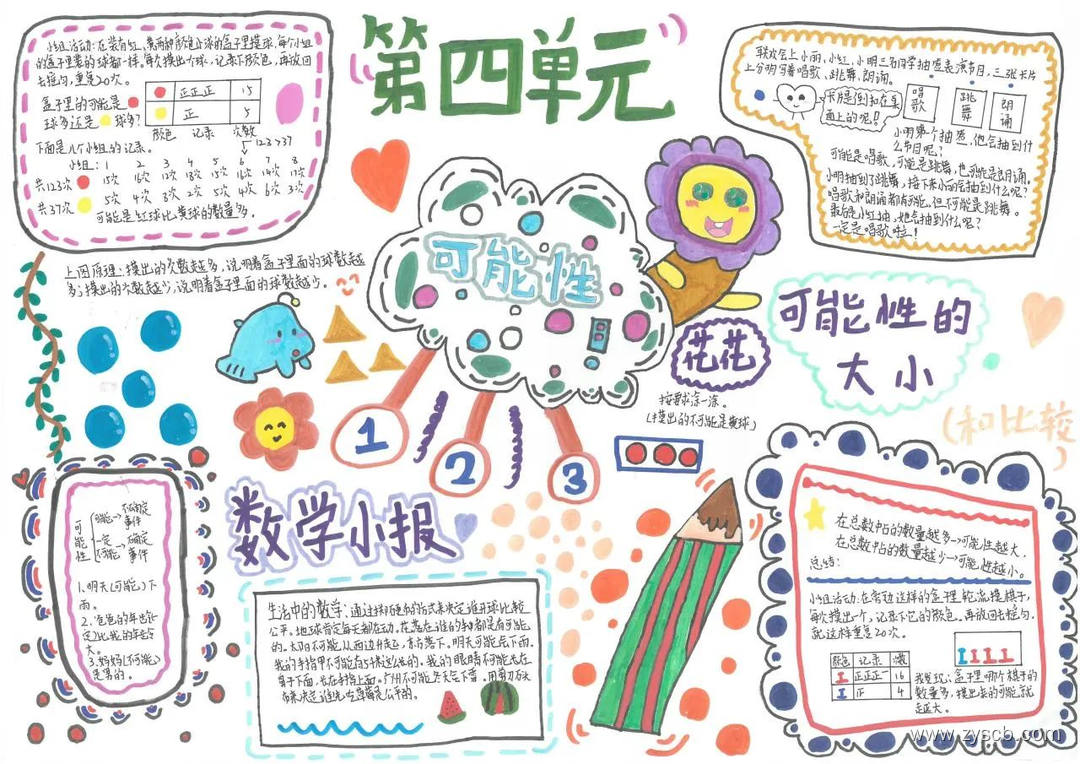 第四单元
小组活动:在装有红、黄两种颜色小球的盒子里摸球。每个小组
的盒子里装的球都一样。每次摸出个球,记录下颜色,再放回
去摇匀,重复20次。
盒子里的可能是
球多还是球多?
正正正 15
正 5
颜色 记录 次数
123>37
下面是八个小组的记录。
小组: 1 2 3 4 5 6 7 8
共123次
共37次 5次 4次 3次 2次 5次 4次 6次 3次
可能是红球比黄球的数量多。
上图原理:摸出的次数越多,说明着盒子里面的球数越
多;摸出的次数越少,说明着盒子里面的球数越少。
联欢会上小丽,小红,小明三名同学抽签表演节目,三张卡片
上分别写着唱歌、跳舞、朗诵。
卡片是倒扣在桌
面上的呢!
唱歌
跳舞
朗诵
小明第一个抽签,他会抽到什
么节目呢?
可能是唱歌,可能是跳舞,也可能是朗诵。
小明抽到了跳舞,接下来小丽会抽到什么呢?
唱歌和朗诵都有可能,但不可能是跳舞。
最后是小红抽,她会抽到什么呢?
一定是唱歌啦!
可能性
花花
可能性的
大小
(和比较)
按要求涂一涂。
(摸出的不可能是黄球)
1
2
3
数学小报
可能性
可能→不确定事件
一定
不可能
→确定事件
1.明天(可能)下
雨。
2.爸爸的年齿(一
定)比我的年齿
大。
3.妈妈(不可能)
是男的。
生活中的数学:通过抛硬币的方式来决定谁开球比较
公平。地球肯定每天都在动。花落在谁的身都是有可能
的。太阳不可能从西边升起,东方落下。明天可能会下雨。
我的手指甲不可能有5根这么长的。我的眼睛不可能长在
鼻子下面,长在手指上面。广州不可能天天会下雪。用剪刀石头
布来决定谁先吃草莓是公平的。
在总数中占的数量越多→可能性越大,
在总数中占的数量越少→可能性越小。
总结:
小组活动:在旁边这样的盒里轮流摸棋子,
每次摸出一个,记录下它的颜色。再放回去摇匀。
就这样重复20次。
颜色 记录 次数
正正正一 16
正 4
我发现:盒子里哪个棋子的
数量多,摸出来的可能就
越大。
www.zyscb.com